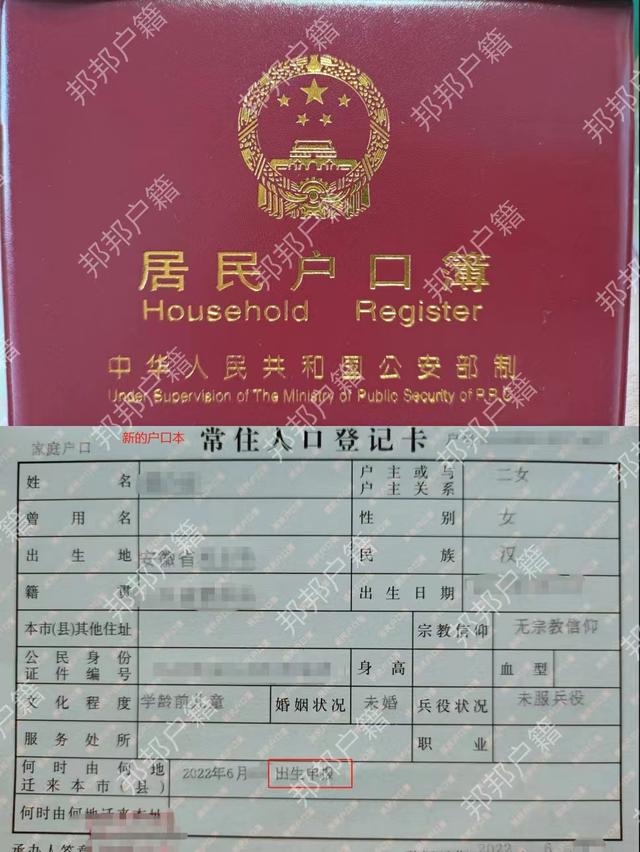 居民户口簿
Household Register
中华人民共和国公安部制
Under Supervision of The Ministry of Public Security of P.R.C
新的户口本
家庭户口 常住人口登记卡
姓名 户主或与户主关系 二女
曾用名 性别 女
出生地 安徽省 民族 汉
籍贯 出生日期
本市(县)其他住址 宗教信仰 无宗教信仰
公民身份证件编号 身高 血型
文化程度 学龄前儿童 婚姻状况 未婚 兵役状况 未服兵役
服务处所 职业
何时由何地迁来本市(县) 2022年6月 出生申报
何时由何地迁来本址
承办人签章 2022 6
邦邦户籍